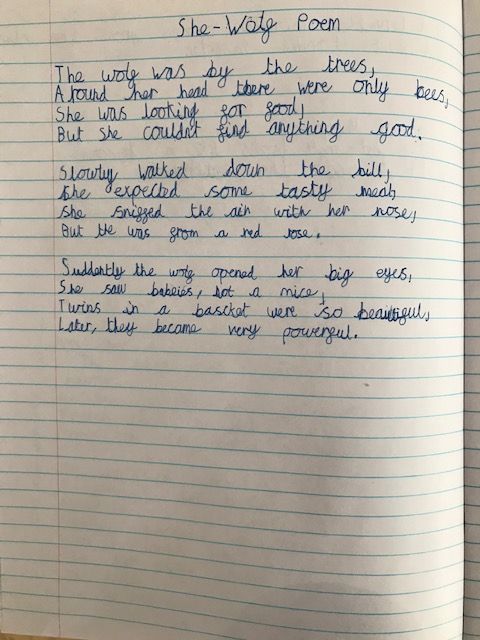 She-Wolf Poem
The wolf was by the trees,
Around her head there were only bees,
She was looking for food,
But she couldn't find anything good.
Slowly walked down the hill,
She expected some tasty meal,
She sniffed the air with her nose,
But was from a red rose.
Suddently the wolf opened her big eyes,
She saw babeies, not a mice,
Twins in a bascket were so beautiful,
Later, they became very powerful.